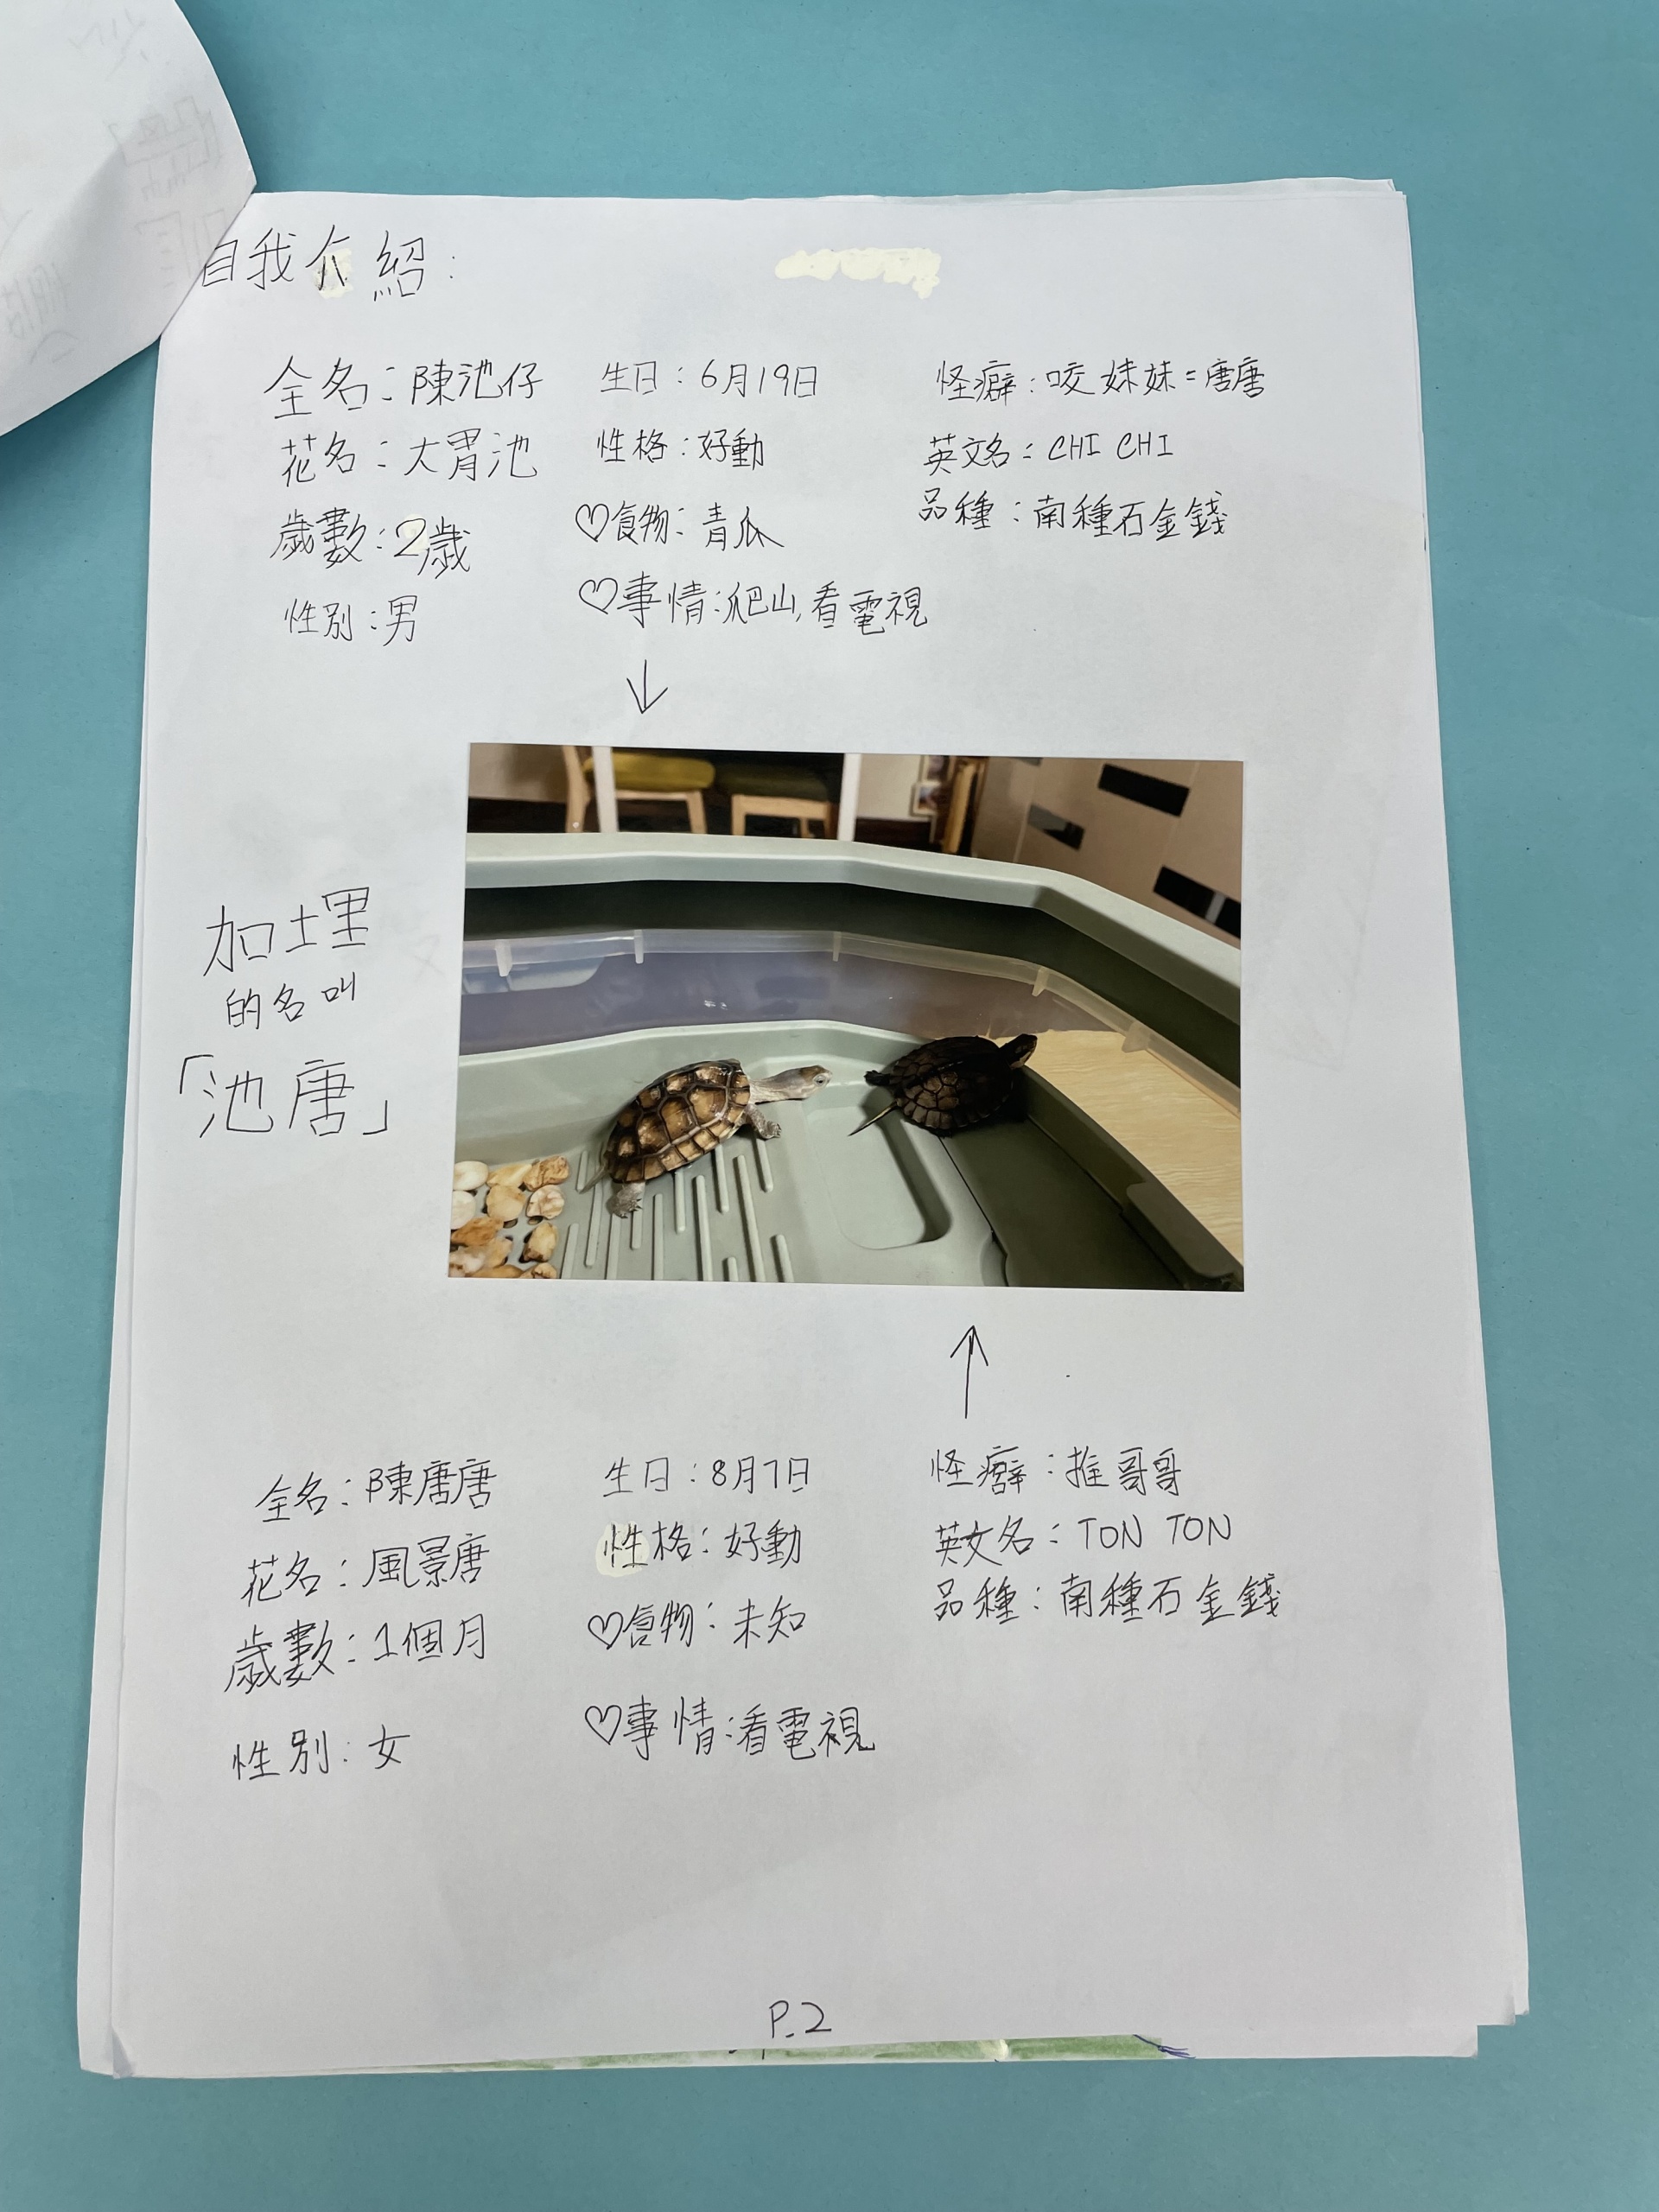 自我介紹:
全名:陳池仔
花名:大胃池
歲數:2歲
性別:男
生日:6月19日
性格:好動
♡食物:青瓜
♡事情:爬山,看電視
怪癖:咬妹妹=唐唐
英文名=CHI CHI
品種:南種石金錢
↓
加埋
的名叫
「池唐」
↑
全名:陳唐唐
花名:風景唐
歲數:1個月
性別:女
生日:8月7日
性格:好動
♡食物:未知
♡事情:看電視
怪癖:推哥哥
英文名:TON TON
品種:南種石金錢
P.2